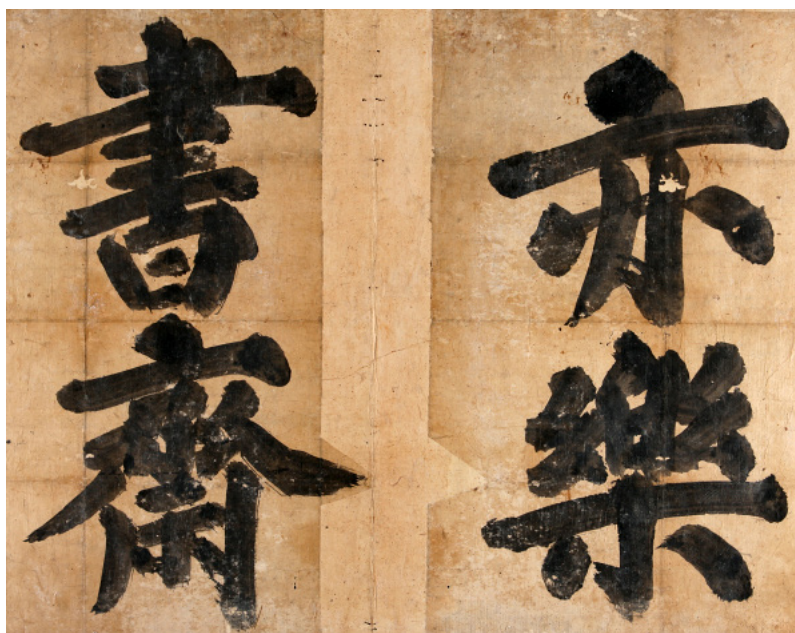 亦樂
書齋